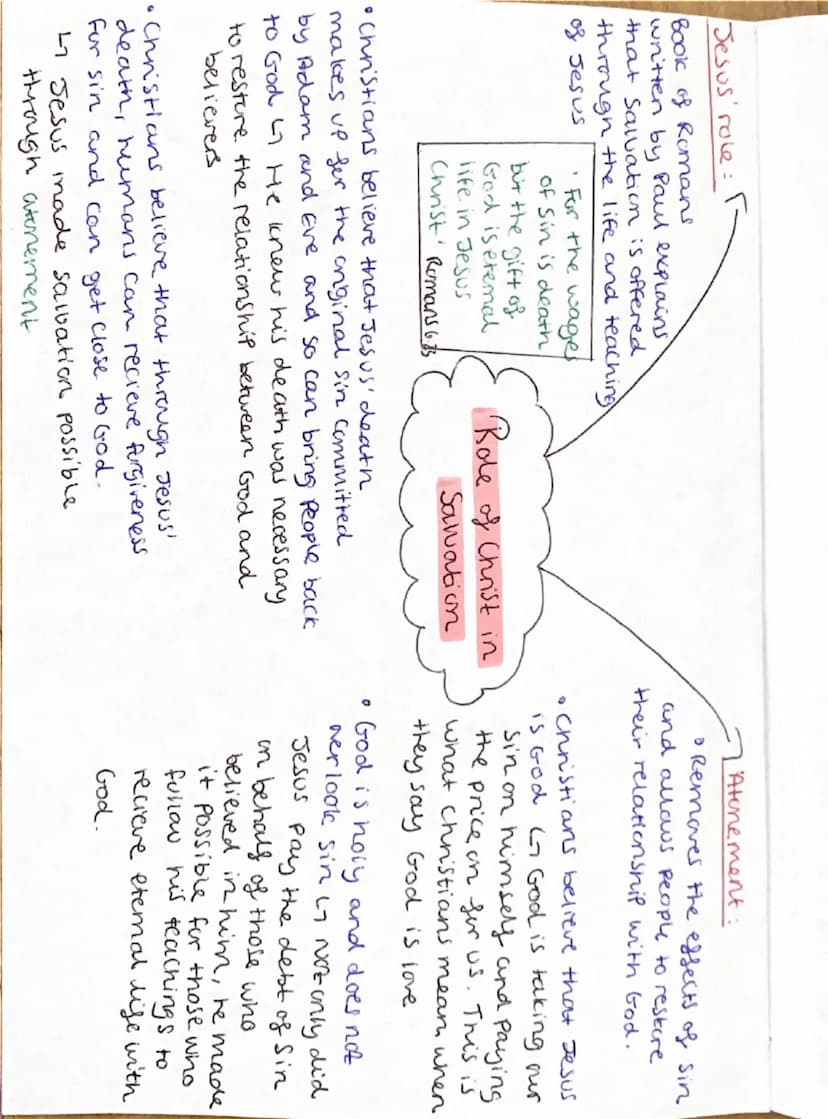 Role of Christ in
Salvation
Jesus' role:
Book of Romans
written by Paul explains
that Salvation is offered
through the life and teaching
of Jesus
'For the wages
of sin is death
but the gift of
God is eternal
life in Jesus
Christ' Romans 6:23
• Christians believe that Jesus' death
makes up for the original sin committed
by Adam and Eve and so can bring people back
to God ↳ He knew his death was necessary
to restore the relationship between God and
believers
• Christians believe that through Jesus'
death, humans can recieve forgiveness
for sin and can get close to God.
↳ Jesus made salvation possible
through atonement
Atonement:
• Removes the effects of sin
and allows people to restore
their relationship with God.
• Christians believe that Jesus
is God ↳ God is taking our
sin on himself and paying
the price on for us. This is
what Christians mean when
they say God is love
• God is holy and does not
overlook sin ↳ Not only did
Jesus pay the debt of sin
on behalf of those who
believed in him, he made
it possible for those who
follow his teachings to
recieve eternal life with
God.